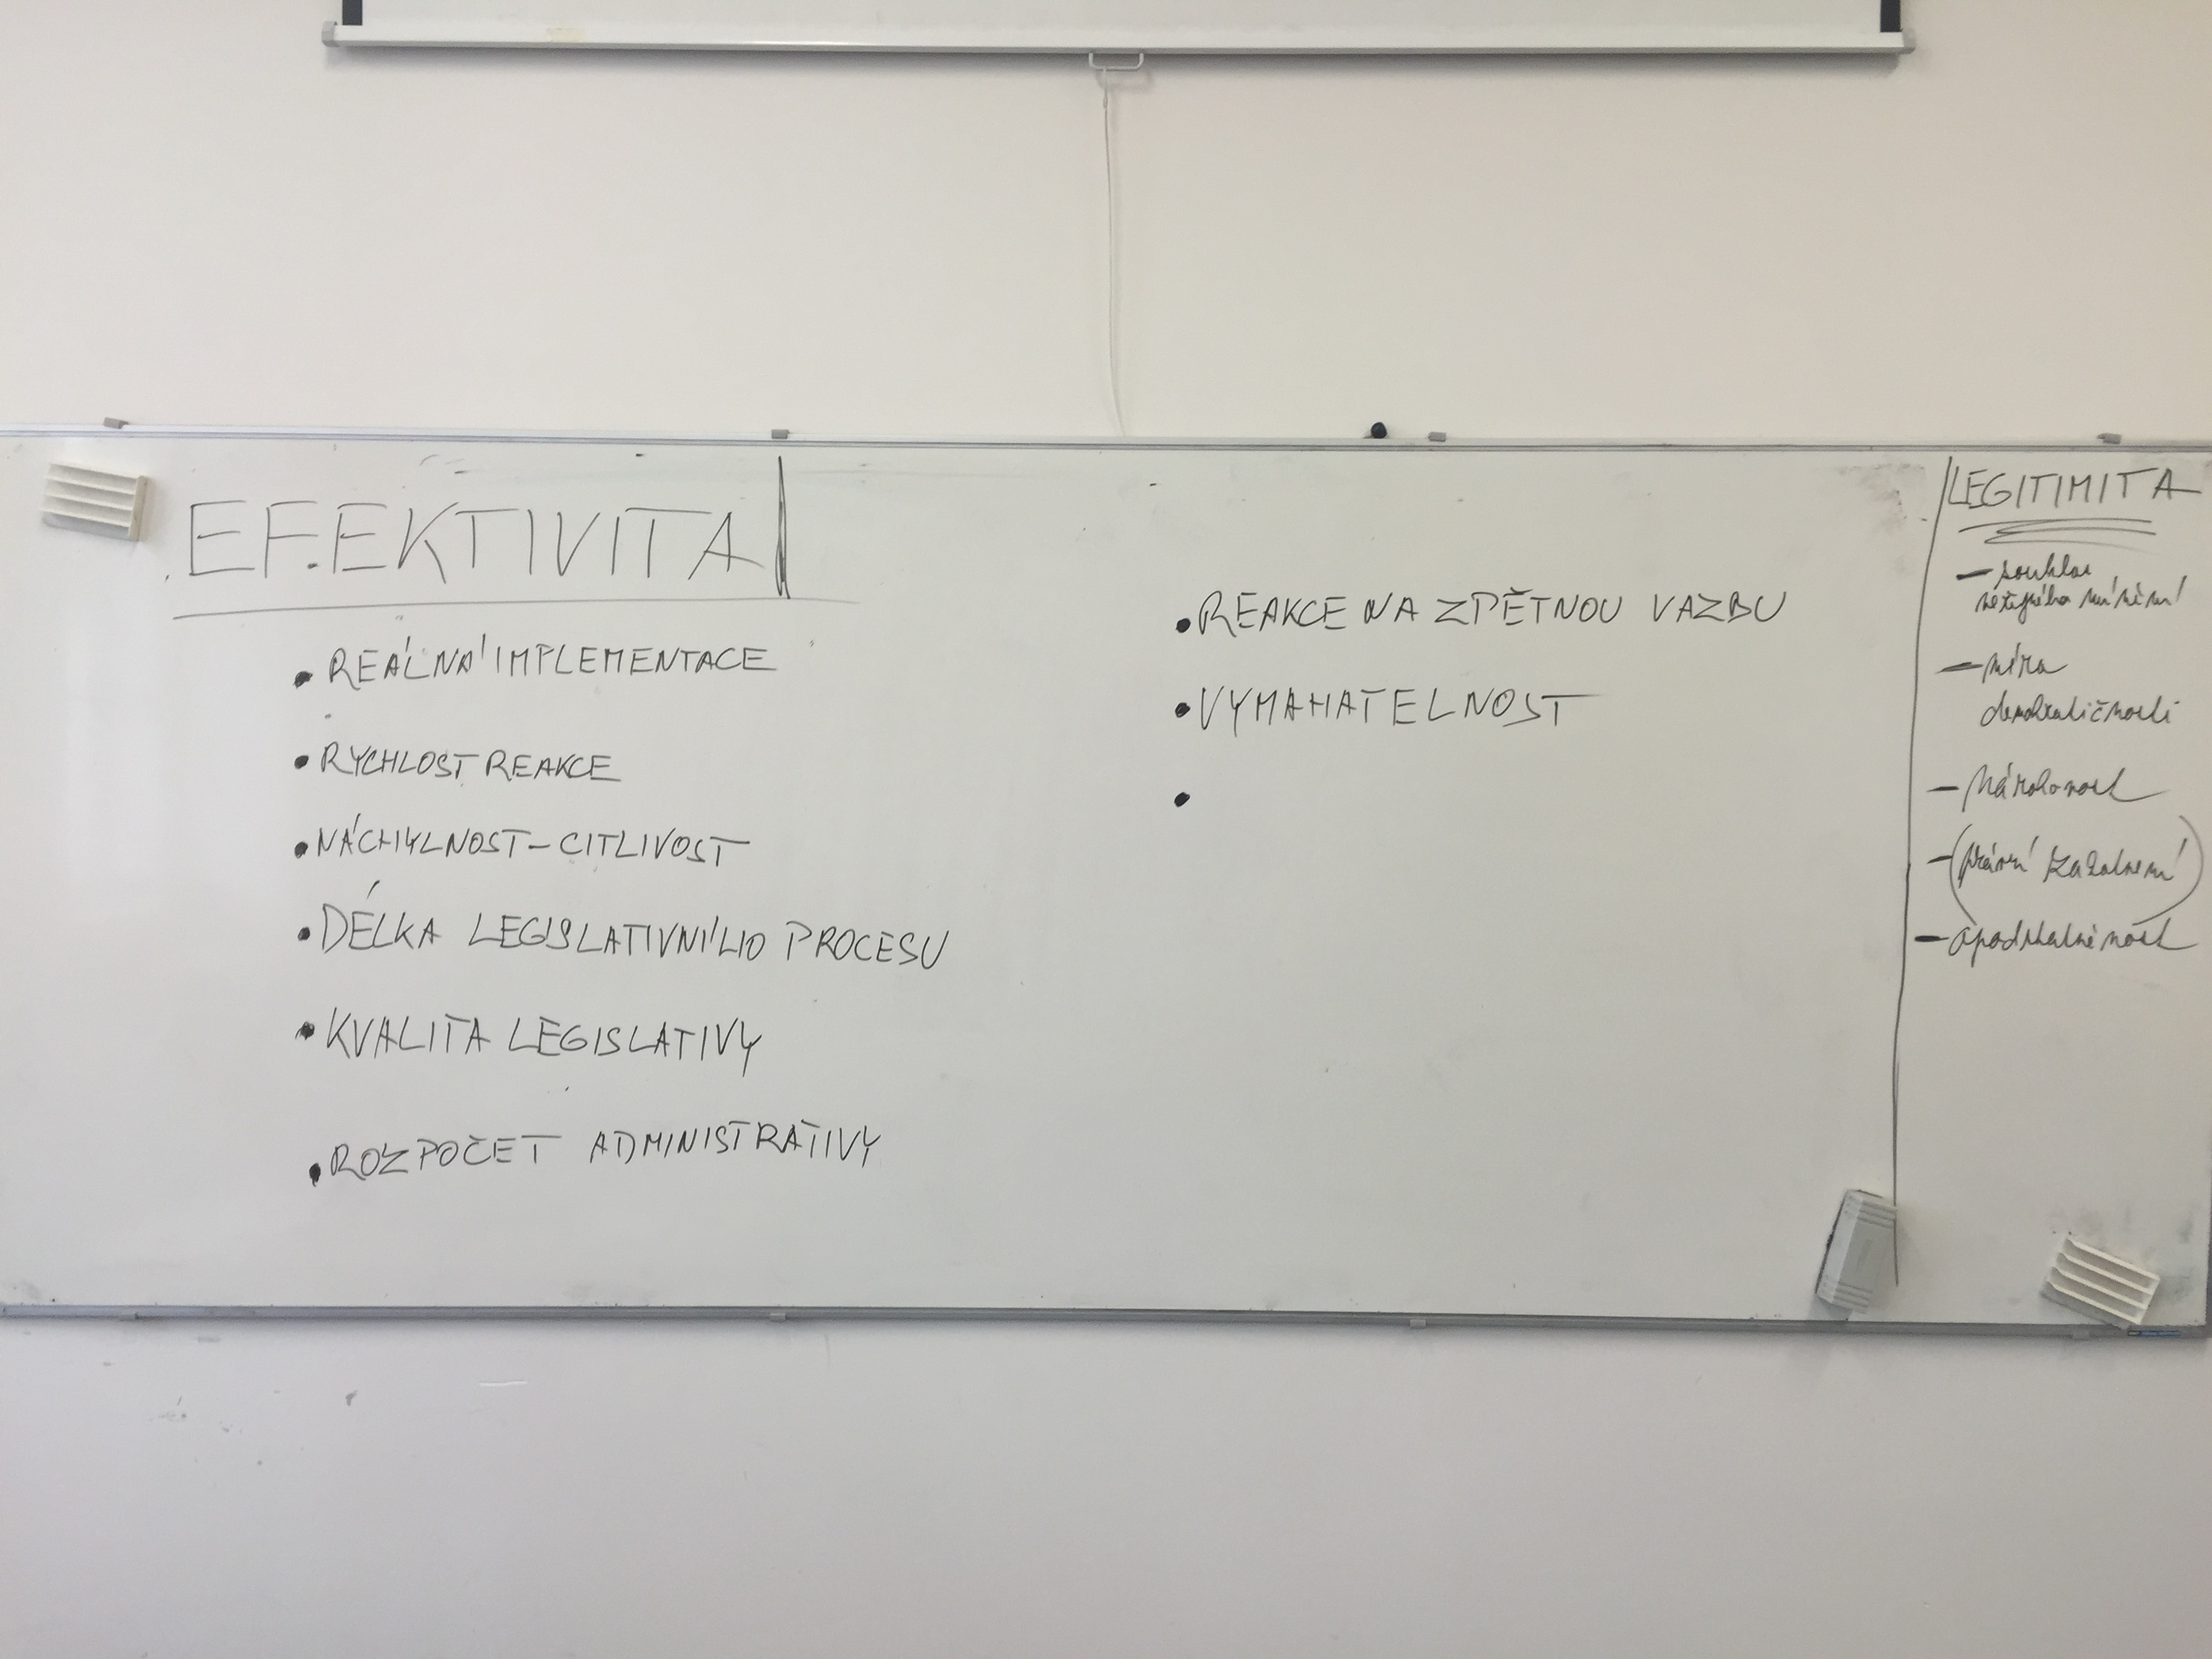 EFEKTIVITA
• REÁLNÁ IMPLEMENTACE
• RYCHLOST REAKCE
• NÁCHYLNOST - CITLIVOST
• DÉLKA LEGISLATIVNÍHO PROCESU
• KVALITA LEGISLATIVY
• ROZPOČET ADMINISTRATIVY
• REAKCE NA ZPĚTNOU VAZBU
• VYMAHATELNOST
•
LEGITIMITA
- souhlas
veřejného mínění
- míra
demokratičnosti
- národnost
- (právní zakotvení)
- opodstatněnost